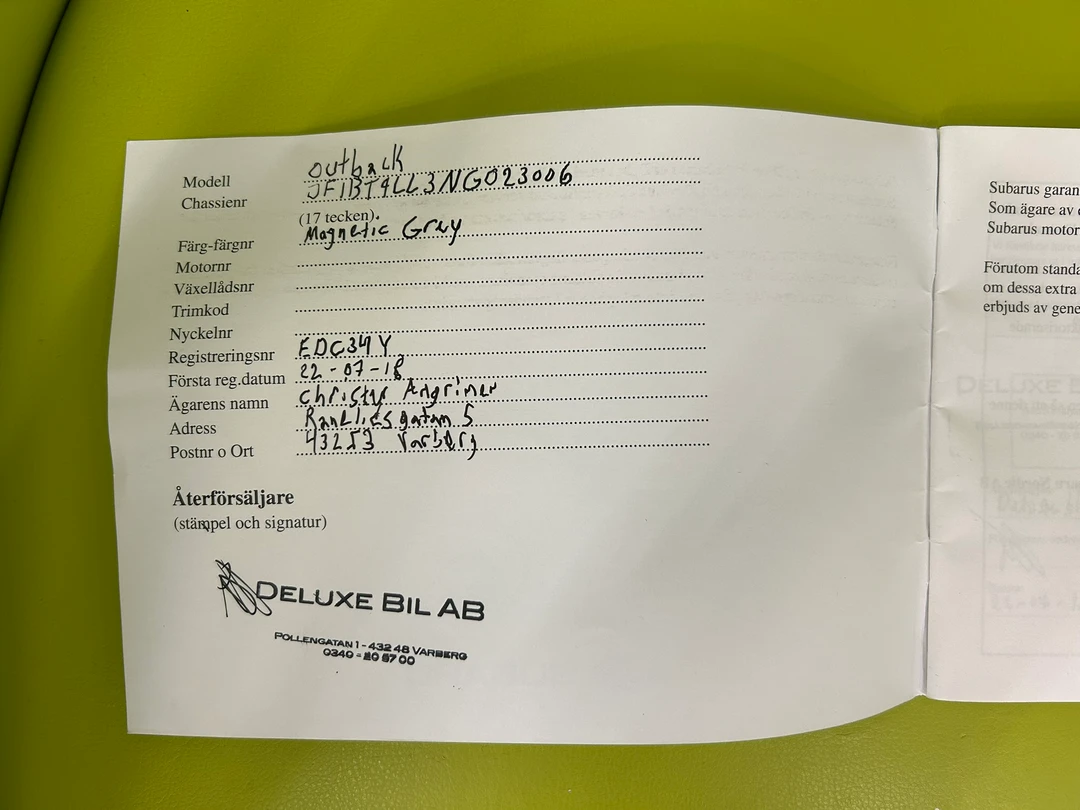 Modell outback
Chassienr JF1BT4LL3NG023006
(17 tecken).
Färg-färgnr Magnetic Gray
Motornr
Växellådsnr
Trimkod
Nyckelnr
Registreringsnr EDC34Y
Första reg.datum 22-07-18
Ägarens namn Christer
Adress 5
Postnr o Ort 43253 Varberg
Återförsäljare
(stämpel och signatur)
DELUXE BIL AB
POLLENGATAN 1 - 432 48 VARBERG
0340 - 20 67 00
Subarus garan
Som ägare av
Subarus motor
Förutom standa
om dessa extra
erbjuds av gene